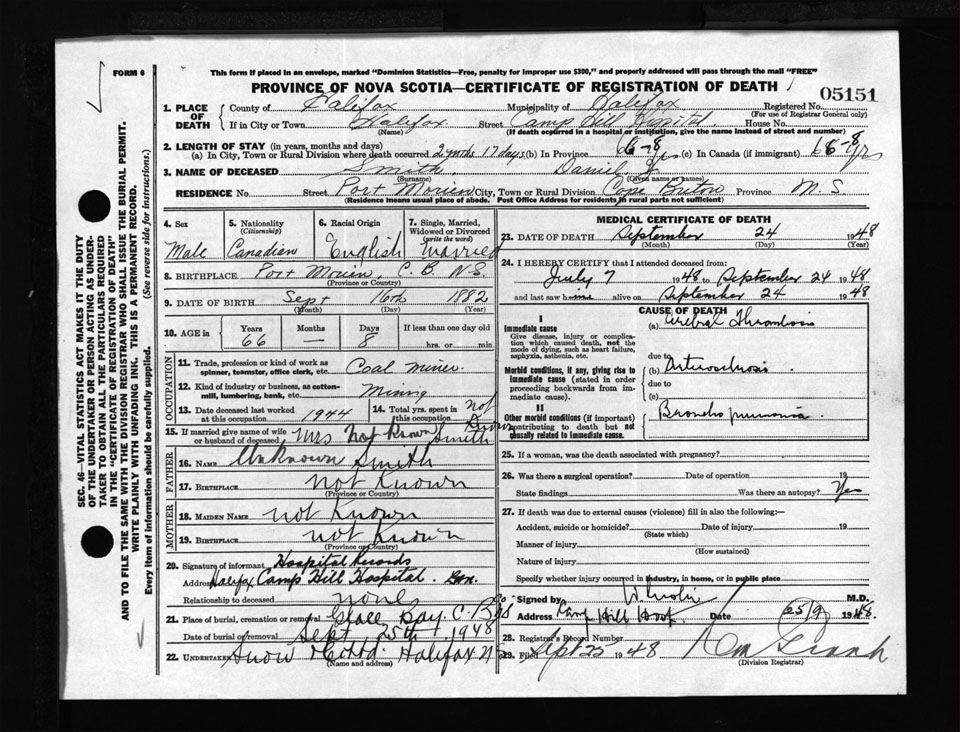 FORM 6
This form if placed in an envelope, marked "Dominion Statistics—Free, penalty for improper use $300," and properly addressed will pass through the mail "FREE"
PROVINCE OF NOVA SCOTIA—CERTIFICATE OF REGISTRATION OF DEATH
05151
1. PLACE OF DEATH County of Halifax Municipality of Halifax Registered No.
(For use of Registrar General only)
If in City or Town Halifax Street Camp Hill Hospital House No.
(Name) (If death occurred in a hospital or institution, give the name instead of street and number)
2. LENGTH OF STAY (in years, months and days)
(a) In City, Town or Rural Division where death occurred 2 mths 17 days (b) In Province 66-8 yrs (c) In Canada (if immigrant) 66-8 yrs
3. NAME OF DECEASED Smith Daniel J.
(Surname) (Given name or names)
RESIDENCE No. Street Port Morien City, Town or Rural Division Cape Breton Province N.S.
(Residence means usual place of abode. Post Office Address for residents in rural parts not sufficient)
4. Sex Male
5. Nationality (Citizenship) Canadian
6. Racial Origin English
7. Single, Married, Widowed or Divorced (write the word) Married
8. BIRTHPLACE Port Morien, C.B. N.S.
(Province or Country)
9. DATE OF BIRTH Sept 16th 1882
(Month) (Day) (Year)
10. AGE in Years 66 Months — Days 8 If less than one day old hrs. or min.
OCCUPATION
11. Trade, profession or kind of work as spinner, teamster, office clerk, etc. Coal Miner
12. Kind of industry or business, as cotton-mill, lumbering, bank, etc. Mining
13. Date deceased last worked at this occupation 1944
14. Total yrs. spent in this occupation Not Known
15. If married give name of wife or husband of deceased Mrs Not Known Smith
FATHER
16. NAME Unknown Smith
17. BIRTHPLACE Not Known
(Province or Country)
MOTHER
18. MAIDEN NAME Not Known
19. BIRTHPLACE Not Known
(Province or Country)
20. Signature of informant Hospital Records
Address Halifax Camp Hill Hospital
Relationship to deceased none
21. Place of burial, cremation or removal Glace Bay C.B. NS
Date of burial or removal Sept 25th 1948
22. Undertaker Snow Halifax N.S.
(Name and address)
MEDICAL CERTIFICATE OF DEATH
23. DATE OF DEATH September 24 1948
(Month) (Day) (Year)
24. I HEREBY CERTIFY that I attended deceased from:
July 7 1948 to September 24 1948
and last saw him alive on September 24 1948
CAUSE OF DEATH
I
Immediate cause
Give disease, injury or complication which caused death, not the mode of dying, such as heart failure, asphyxia, asthenia, etc.
(a) Cerebral Thrombosis
due to
Morbid conditions, if any, giving rise to immediate cause (stated in order proceeding backwards from immediate cause).
(b) Arteriosclerosis
due to
(c)
II
Other morbid conditions (if important) contributing to death but not causally related to immediate cause.
Broncho pneumonia.
25. If a woman, was the death associated with pregnancy?
26. Was there a surgical operation? Date of operation 19
State findings Was there an autopsy? Yes
27. If death was due to external causes (violence) fill in also the following:—
Accident, suicide or homicide? Date of injury 19
(State which)
Manner of injury
(How sustained)
Nature of injury
Specify whether injury occurred in industry, in home, or in public place
Signed by M.D.
Address Camp Hill Hosp. Date 25/9 1948.
28. Registrar's Record Number
29. Filed Sept 25 1948
(Division Registrar)
SEC. 46—VITAL STATISTICS ACT MAKES IT THE DUTY
OF THE UNDERTAKER OR PERSON ACTING AS UNDER-
TAKER TO OBTAIN ALL THE PARTICULARS REQUIRED
IN THE "CERTIFICATE OF REGISTRATION OF DEATH"
AND TO FILE THE SAME WITH THE DIVISION REGISTRAR WHO SHALL ISSUE THE BURIAL PERMIT.
WRITE PLAINLY WITH UNFADING INK. THIS IS A PERMANENT RECORD.
Every item of information should be carefully supplied. (See reverse side for instructions.)